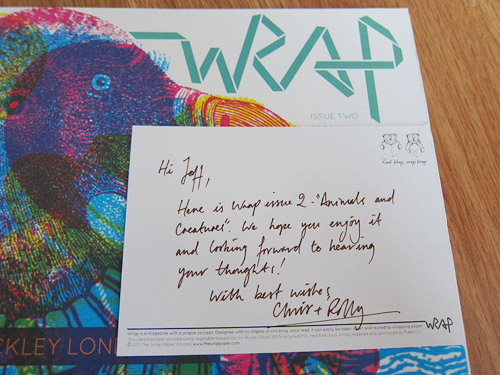 WRAP
ISSUE TWO
Read Wrap, wrap Wrap
Hi Jeff,
Here is Wrap issue 2 - "Animals and
Creatures". We hope you enjoy it
and looking forward to hearing
your thoughts!
With best wishes,
Chris + Polly
wrap is a magazine with a unique concept. Designed with no staples or stitching, once read, it can easily be taken apart and re-used as wrapping paper
This card has been printed using vegetable based inks on
© 2011 The Wrap Paper Limited. www.thewrappaper.com
WRAP
CKLEY LON